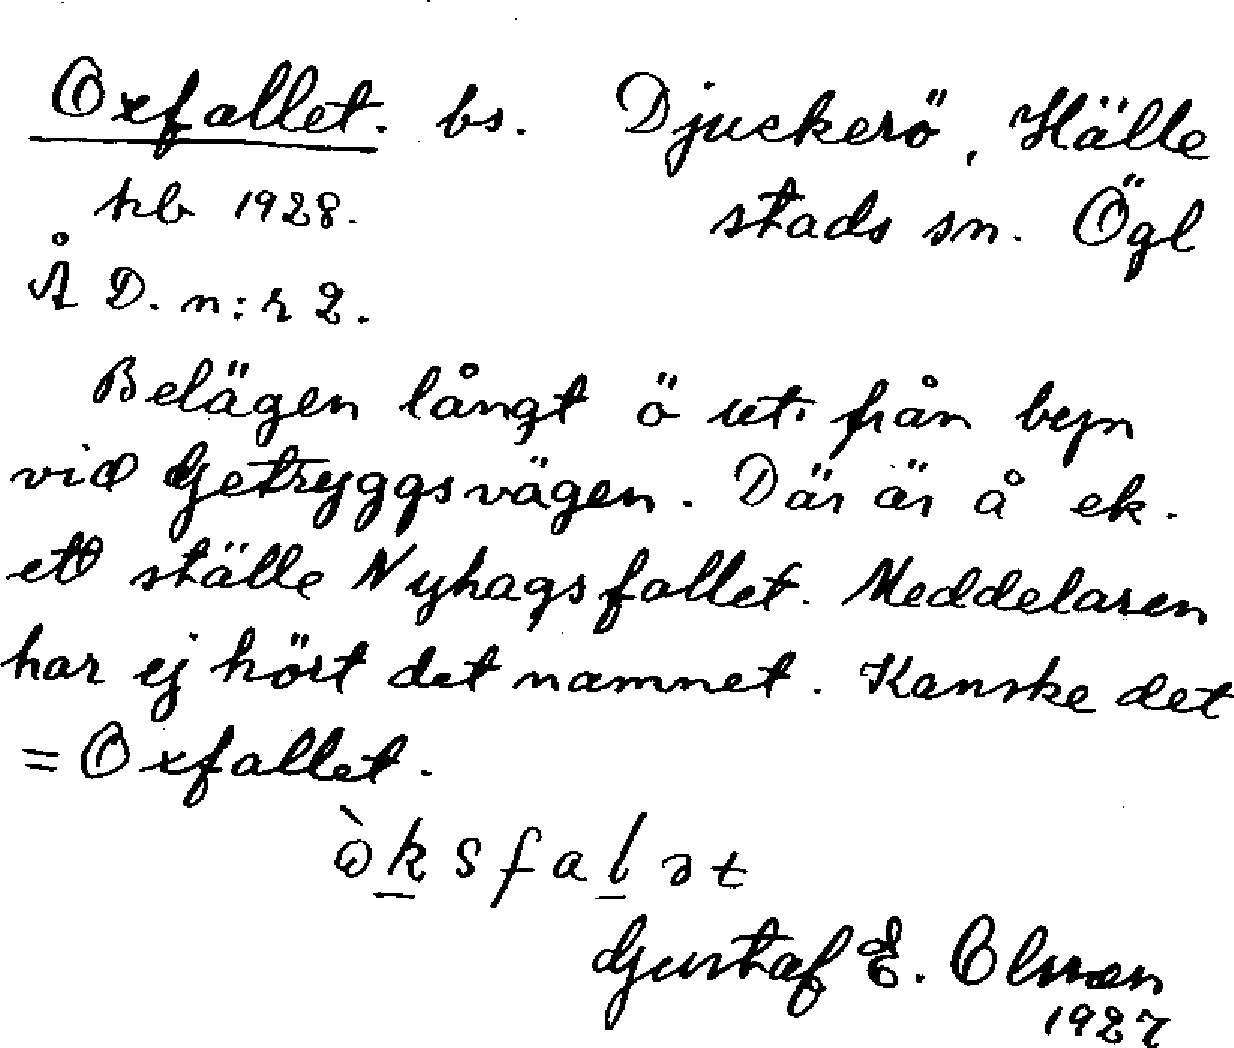 Oxfallet. bs. Djuckerö, Hälle
kb 1928. stads sn. Ögl
Å D. n:r 2.
Belägen långt ö ut. från byn
vid Getryggsvägen. Där är å ek.
ett ställe Nyhagsfallet. Meddelaren
har ej hört det namnet. Kanske det
= Oxfallet.
òksfalət
Gustaf E. Olsson
1927